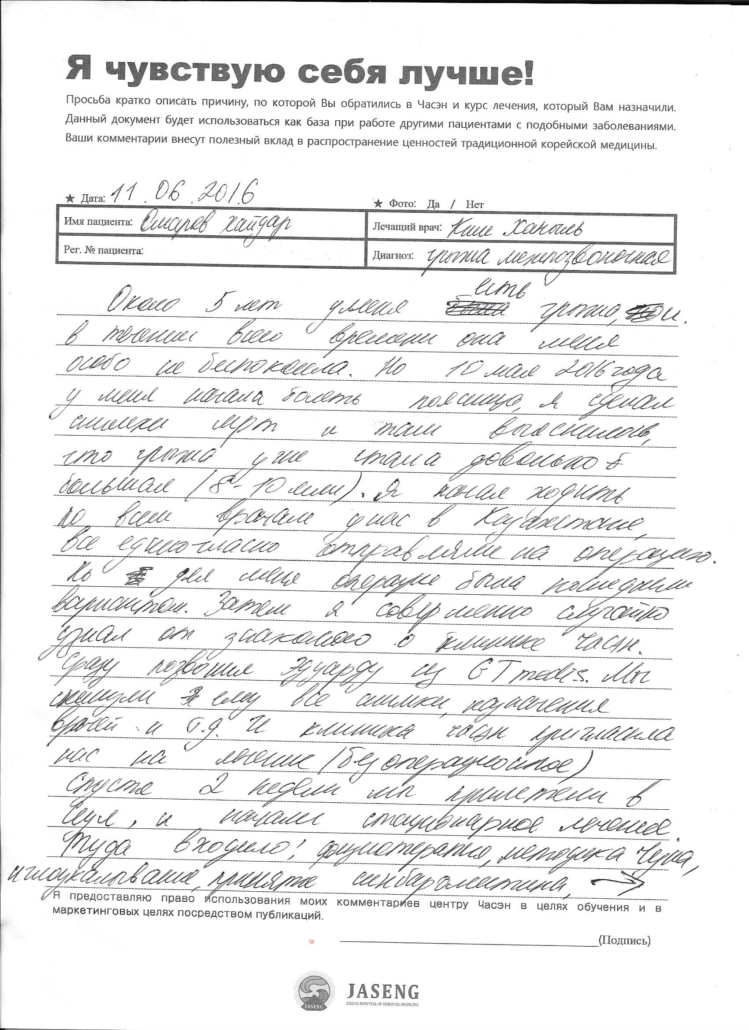 Я чувствую себя лучше!
Просьба кратко описать причину, по которой Вы обратились в Часэн и курс лечения, который Вам назначили.
Данный документ будет использоваться как база при работе другими пациентами с подобными заболеваниями.
Ваши комментарии внесут полезный вклад в распространение ценностей традиционной корейской медицины.
★ Дата: 11.06.2016 ★ Фото: Да / Нет
Имя пациента: Омаров Хайдар Лечащий врач: Ким Ханыль
Рег. № пациента: Диагноз: грыжа межпозвоночная
есть
Около 5 лет у меня грыжа, и
в течении всего времени она меня
особо не беспокоила. Но 10 мая 2016 года
у меня начала болеть поясница, я сделал
снимки мрт и там выяснилось,
что грыжа уже стала довольно
большая (8-10 мм). Я начал ходить
по всем врачам у нас в Казахстане,
все единогласно отправляли на операцию.
Но для меня операция была последним
вариантом. Затем я совершенно случайно
узнал от знакомого о клинике Часэн.
Сразу позвонил Эдуарду из GTmedis. Мы
скинули ему все снимки, назначения
врачей и т.д. И клиника часэн пригласила
нас на лечение (безоперационное)
Спустя 2 недели мы прилетели в
Сеул, и начали стационарное лечение
Туда входило: физиотерапия, методика Чуна,
иглоукалывание, принятие
Я предоставляю право использования моих комментариев центру Часэн в целях обучения и в
маркетинговых целях посредством публикаций.
(Подпись)
JASENG
JASENG